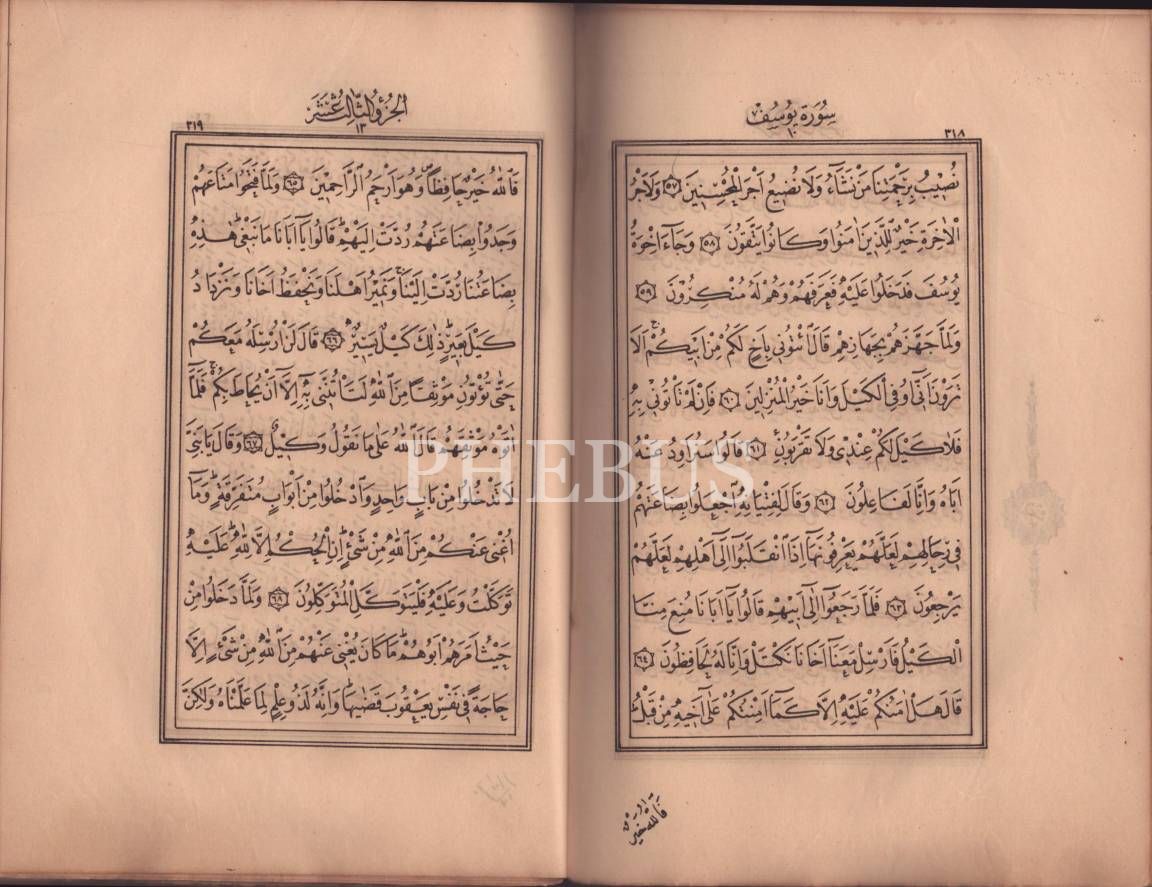 سُورَة يُوسُفْ
٣١٨
نُصِيبُ بِرَحْمَتِنَا مَنْ نَشَاءُ وَلَا نُضِيعُ اَجْرَ الْمُحْسِنِينَ ٥٧ وَلَاَجْرُ
الْاٰخِرَةِ خَيْرٌ لِلَّذِينَ اٰمَنُوا وَكَانُوا يَتَّقُونَ ٥٨ وَجَاءَ اِخْوَةُ
يُوسُفَ فَدَخَلُوا عَلَيْهِ فَعَرَفَهُمْ وَهُمْ لَهُ مُنْكِرُونَ ٥٩
وَلَمَّا جَهَّزَهُمْ بِجَهَازِهِمْ قَالَ ائْتُونِي بِاَخٍ لَكُمْ مِنْ اَبِيكُمْ اَلَا
تَرَوْنَ اَنِّي اُوفِي الْكَيْلَ وَاَنَا خَيْرُ الْمُنْزِلِينَ ٦٠ فَاِنْ لَمْ تَاْتُونِي بِهِ
فَلَا كَيْلَ لَكُمْ عِنْدِي وَلَا تَقْرَبُونِ ٦١ قَالُوا سَنُرَاوِدُ عَنْهُ
اَبَاهُ وَاِنَّا لَفَاعِلُونَ ٦٢ وَقَالَ لِفِتْيَانِهِ اجْعَلُوا بِضَاعَتَهُمْ
فِي رِحَالِهِمْ لَعَلَّهُمْ يَعْرِفُونَهَا اِذَا انْقَلَبُوا اِلٰى اَهْلِهِمْ لَعَلَّهُمْ
يَرْجِعُونَ ٦٣ فَلَمَّا رَجَعُوا اِلٰى اَبِيهِمْ قَالُوا يَا اَبَانَا مُنِعَ مِنَّا
الْكَيْلُ فَاَرْسِلْ مَعَنَا اَخَانَا نَكْتَلْ وَاِنَّا لَهُ لَحَافِظُونَ ٦٤
قَالَ هَلْ اٰمَنُكُمْ عَلَيْهِ اِلَّا كَمَا اَمِنْتُكُمْ عَلٰى اَخِيهِ مِنْ قَبْلُ
فَاللّٰهُ خَيْرٌ
الجزؤ الثّالث عشر
١٣
٣١٩
فَاللّٰهُ خَيْرٌ حَافِظًا وَهُوَ اَرْحَمُ الرَّاحِمِينَ ٦٥ وَلَمَّا فَتَحُوا مَتَاعَهُمْ
وَجَدُوا بِضَاعَتَهُمْ رُدَّتْ اِلَيْهِمْ قَالُوا يَا اَبَانَا مَا نَبْغِي هٰذِهِ
بِضَاعَتُنَا رُدَّتْ اِلَيْنَا وَنَمِيرُ اَهْلَنَا وَنَحْفَظُ اَخَانَا وَنَزْدَادُ
كَيْلَ بَعِيرٍ ذٰلِكَ كَيْلٌ يَسِيرٌ ٦٦ قَالَ لَنْ اُرْسِلَهُ مَعَكُمْ
حَتّٰى تُؤْتُونِ مَوْثِقًا مِنَ اللّٰهِ لَتَاْتُنَّنِي بِهِ اِلَّا اَنْ يُحَاطَ بِكُمْ فَلَمَّا
اٰتَوْهُ مَوْثِقَهُمْ قَالَ اللّٰهُ عَلٰى مَا نَقُولُ وَكِيلٌ ٦٧ وَقَالَ يَا بَنِيَّ
لَا تَدْخُلُوا مِنْ بَابٍ وَاحِدٍ وَادْخُلُوا مِنْ اَبْوَابٍ مُتَفَرِّقَةٍ وَمَا
اُغْنِي عَنْكُمْ مِنَ اللّٰهِ مِنْ شَيْءٍ اِنِ الْحُكْمُ اِلَّا لِلّٰهِ عَلَيْهِ
تَوَكَّلْتُ وَعَلَيْهِ فَلْيَتَوَكَّلِ الْمُتَوَكِّلُونَ ٦٨ وَلَمَّا دَخَلُوا مِنْ
حَيْثُ اَمَرَهُمْ اَبُوهُمْ مَا كَانَ يُغْنِي عَنْهُمْ مِنَ اللّٰهِ مِنْ شَيْءٍ اِلَّا
حَاجَةً فِي نَفْسِ يَعْقُوبَ قَضٰيهَا وَاِنَّهُ لَذُو عِلْمٍ لِمَا عَلَّمْنَاهُ وَلٰكِنَّ
PHEBUS